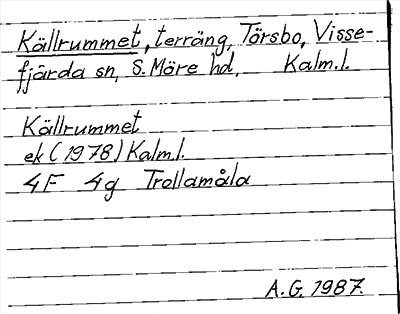 Källrummet, terräng, Törsbo, Visse-
fjärda sn, S. Möre hd, Kalm.l.
Källrummet
ek (1978) Kalm.l.
4F 4g Trollamåla
A.G. 1987.